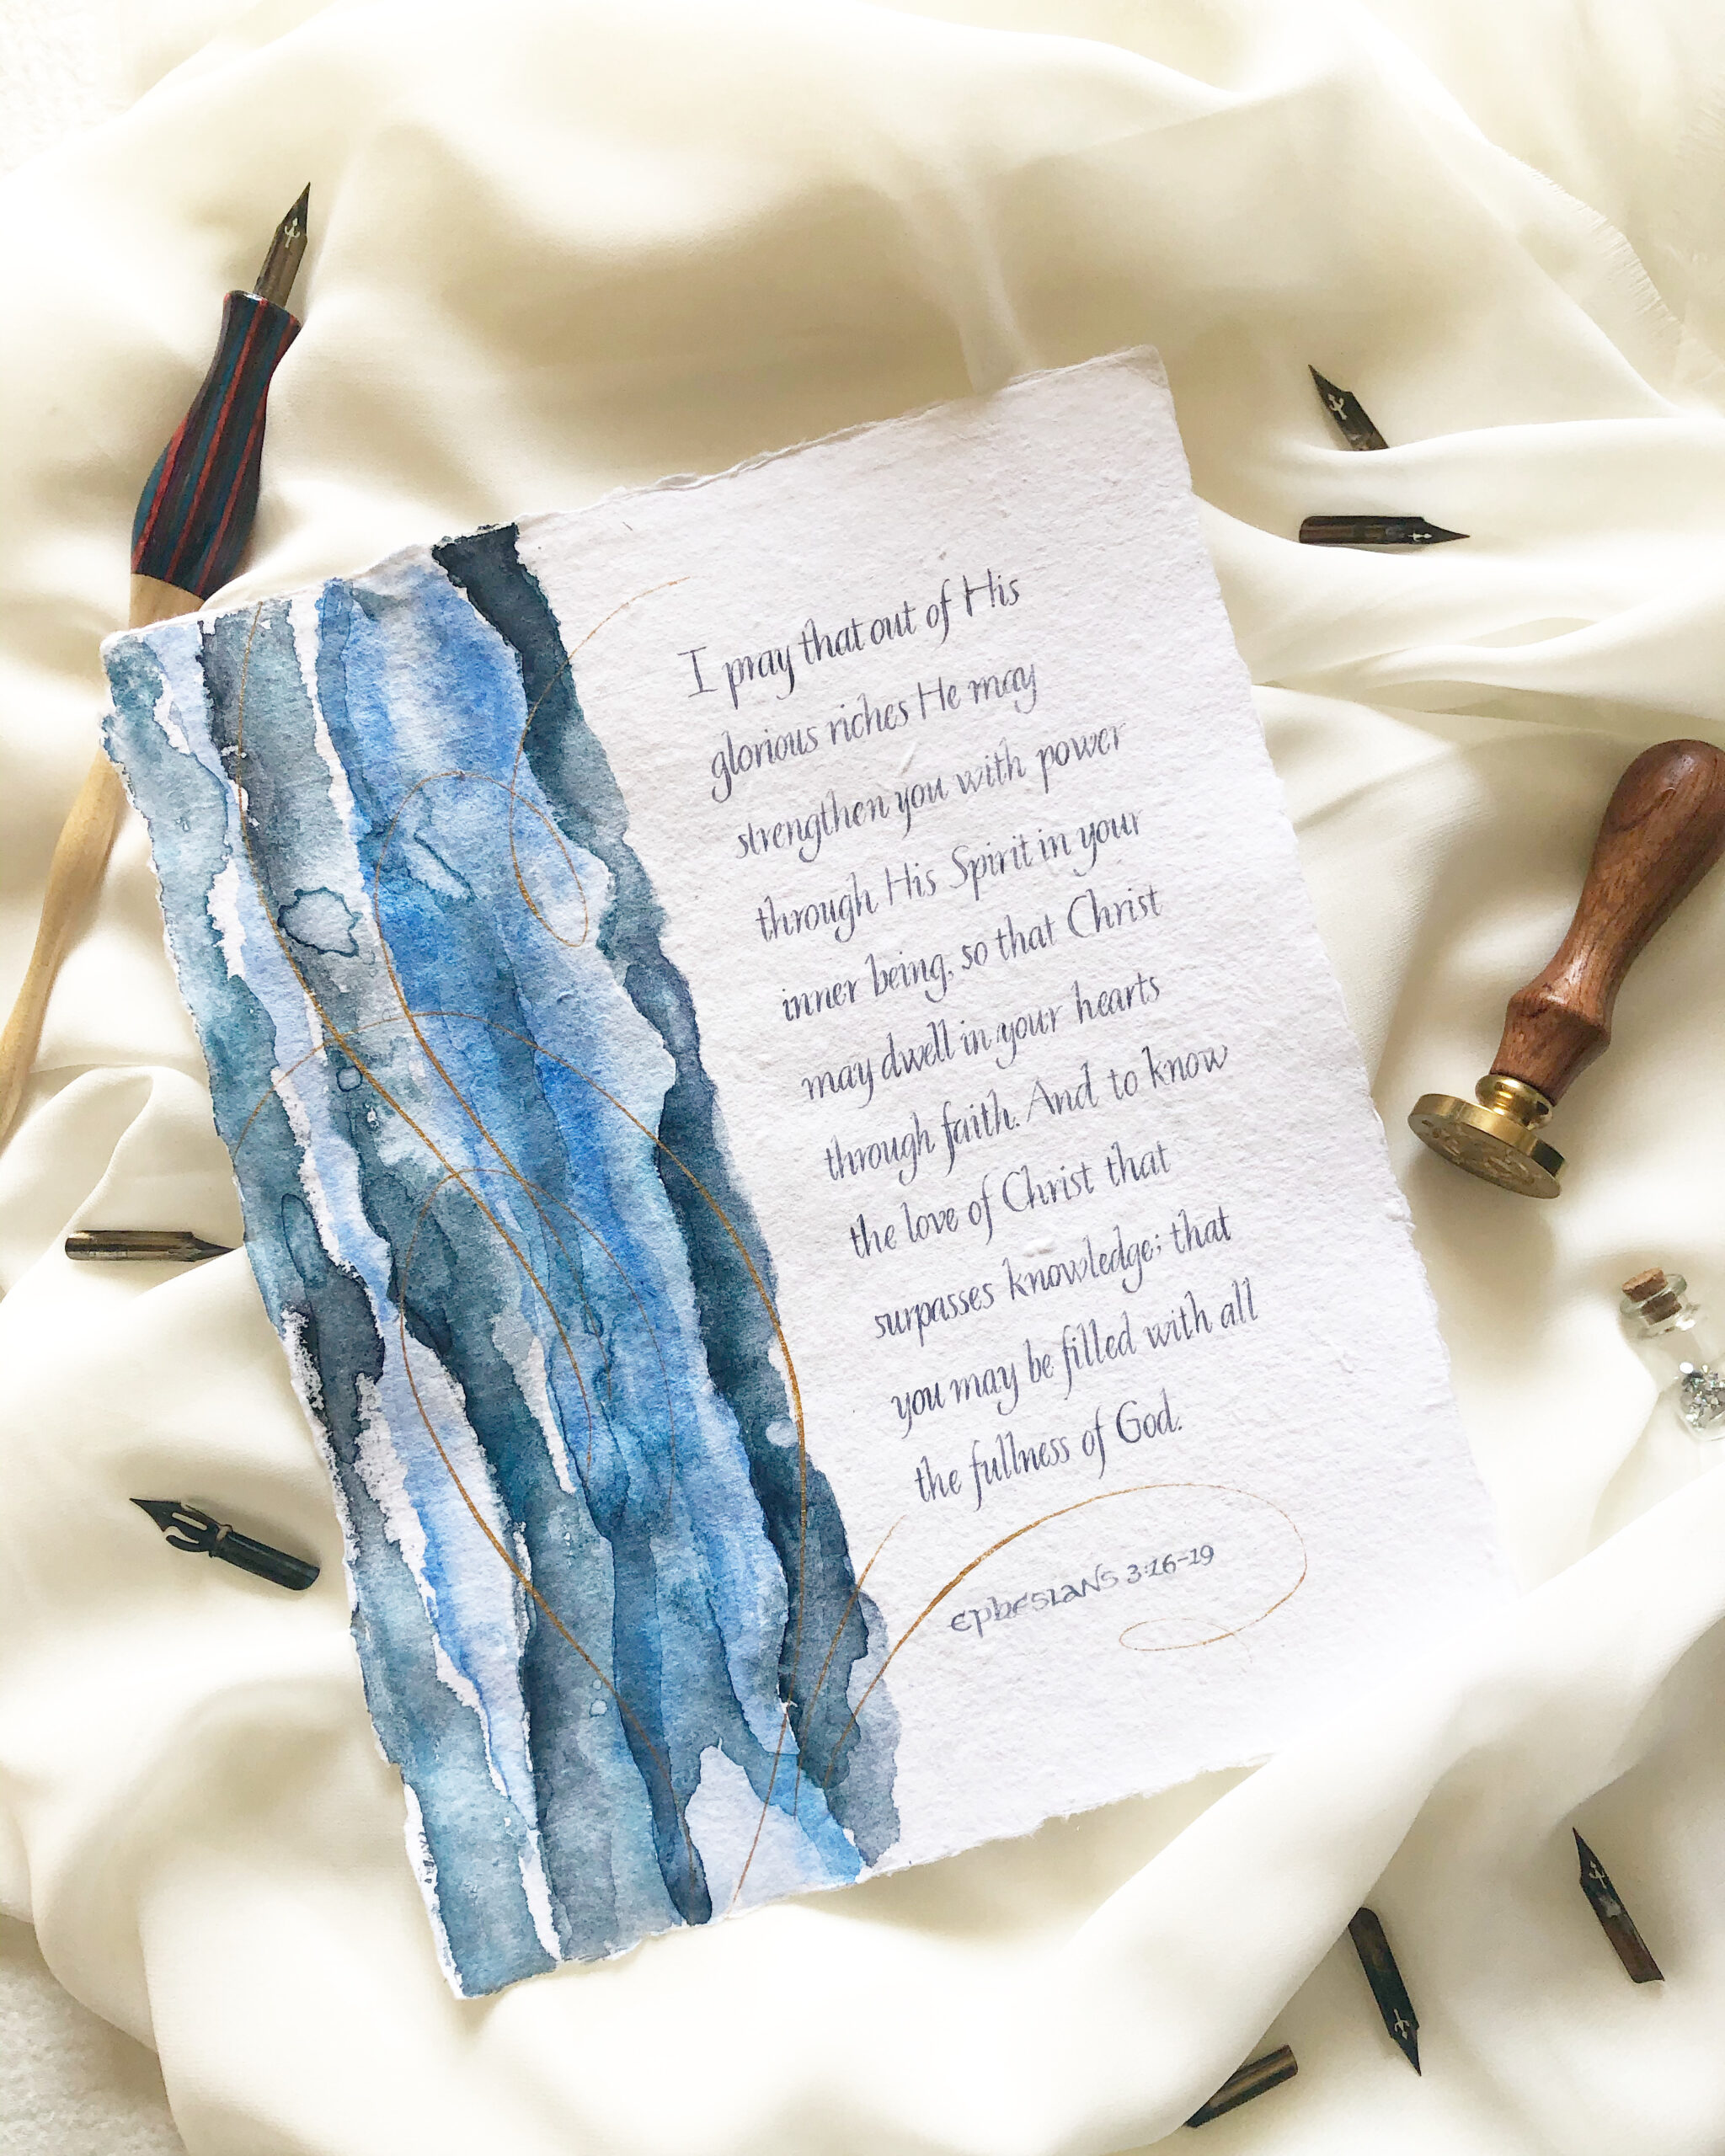 I pray that out of His
glorious riches He may
strengthen you with power
through His Spirit in your
inner being, so that Christ
may dwell in your hearts
through faith. And to know
the love of Christ that
surpasses knowledge; that
you may be filled with all
the fullness of God.
EPHESIANS 3:16-19